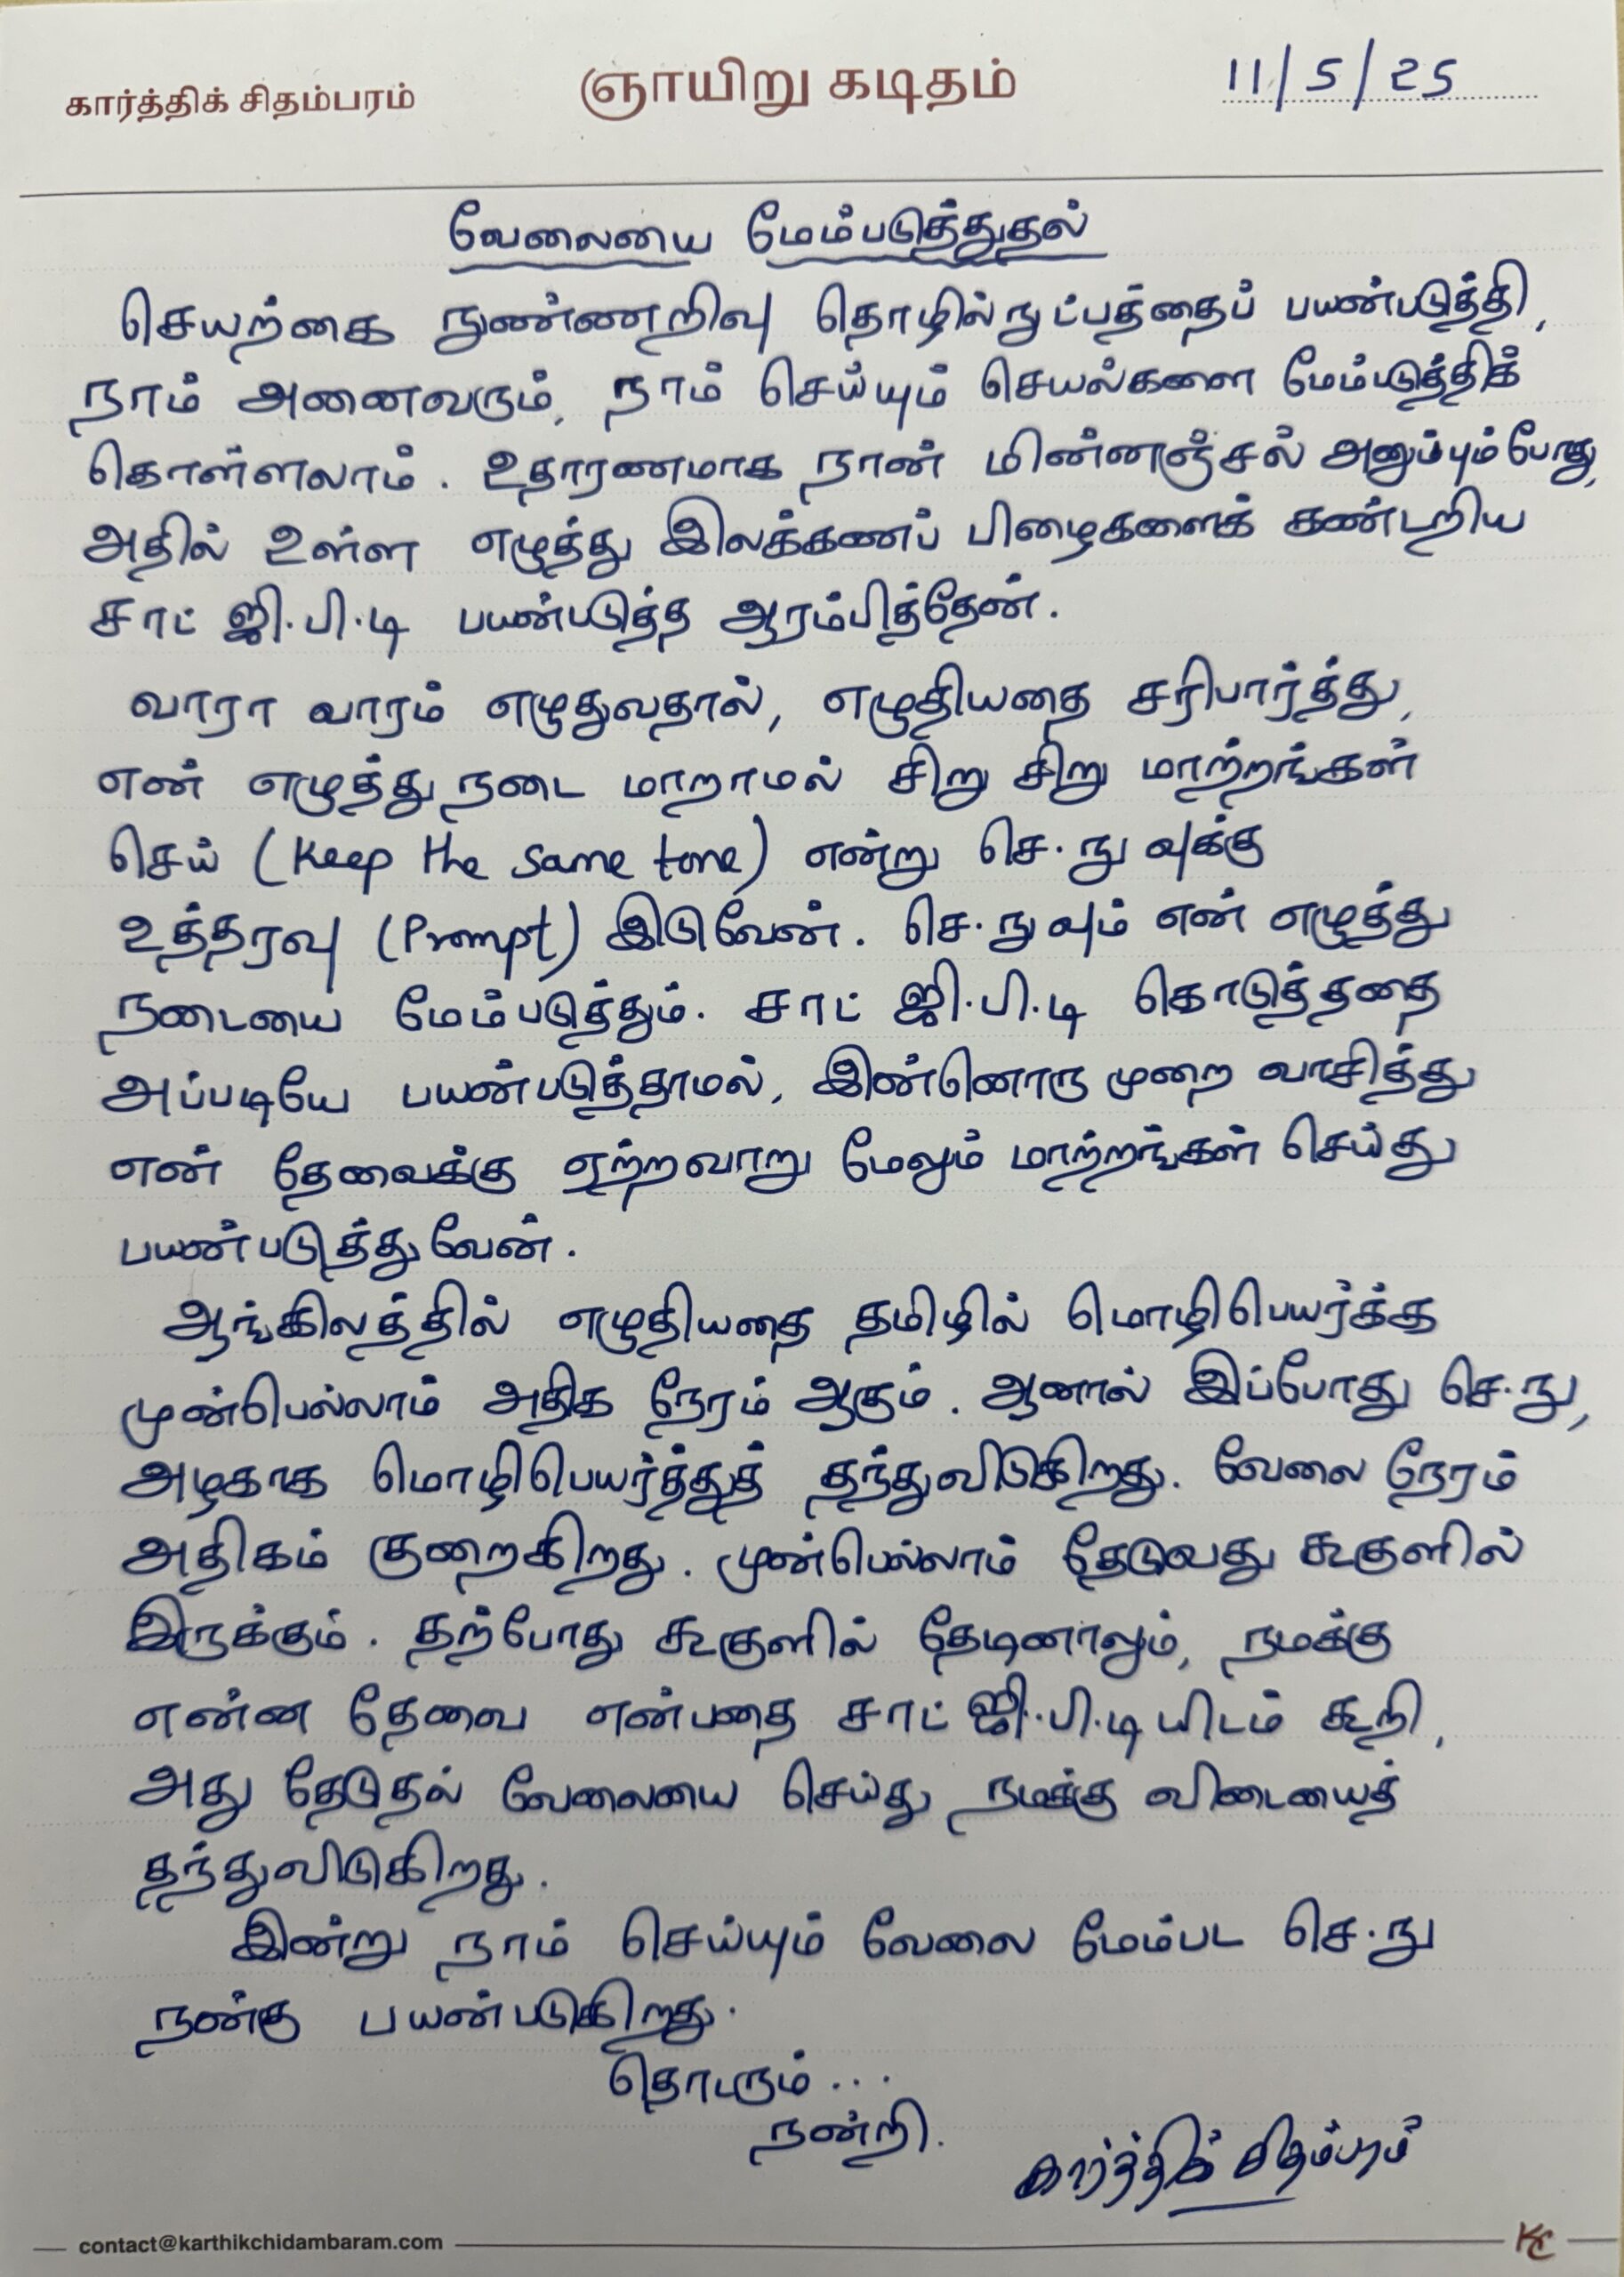 கார்த்திக் சிதம்பரம்
ஞாயிறு கடிதம்
11/5/25
வேலையை மேம்படுத்துதல்
செயற்கை நுண்ணறிவு தொழில்நுட்பத்தைப் பயன்படுத்தி,
நாம் அனைவரும், நாம் செய்யும் செயல்களை மேம்படுத்திக்
கொள்ளலாம். உதாரணமாக நான் மின்னஞ்சல் அனுப்பும்போது,
அதில் உள்ள எழுத்து இலக்கணப் பிழைகளைக் கண்டறிய
சாட் ஜி.பி.டி பயன்படுத்த ஆரம்பித்தேன்.
வாரா வாரம் எழுதுவதால், எழுதியதை சரிபார்த்து,
என் எழுத்து நடை மாறாமல் சிறு சிறு மாற்றங்கள்
செய் (Keep the same tone) என்று செ.நு வுக்கு
உத்தரவு (Prompt) இடுவேன். செ.நு வும் என் எழுத்து
நடையை மேம்படுத்தும். சாட் ஜி.பி.டி கொடுத்ததை
அப்படியே பயன்படுத்தாமல், இன்னொரு முறை வாசித்து
என் தேவைக்கு ஏற்றவாறு மேலும் மாற்றங்கள் செய்து
பயன்படுத்துவேன்.
ஆங்கிலத்தில் எழுதியதை தமிழில் மொழிபெயர்க்க
முன்பெல்லாம் அதிக நேரம் ஆகும். ஆனால் இப்போது செ.நு,
அழகாக மொழிபெயர்த்துத் தந்துவிடுகிறது. வேலை நேரம்
அதிகம் குறைகிறது. முன்பெல்லாம் தேடுவது கூகுளில்
இருக்கும். தற்போது கூகுளில் தேடினாலும், நமக்கு
என்ன தேவை என்பதை சாட் ஜி.பி.டி யிடம் கூறி,
அது தேடுதல் வேலையை செய்து நமக்கு விடையைத்
தந்துவிடுகிறது.
இன்று நாம் செய்யும் வேலை மேம்பட செ.நு
நன்கு பயன்படுகிறது.
தொடரும்...
நன்றி.
கார்த்திக் சிதம்பரம்
contact@karthikchidambaram.com
KC